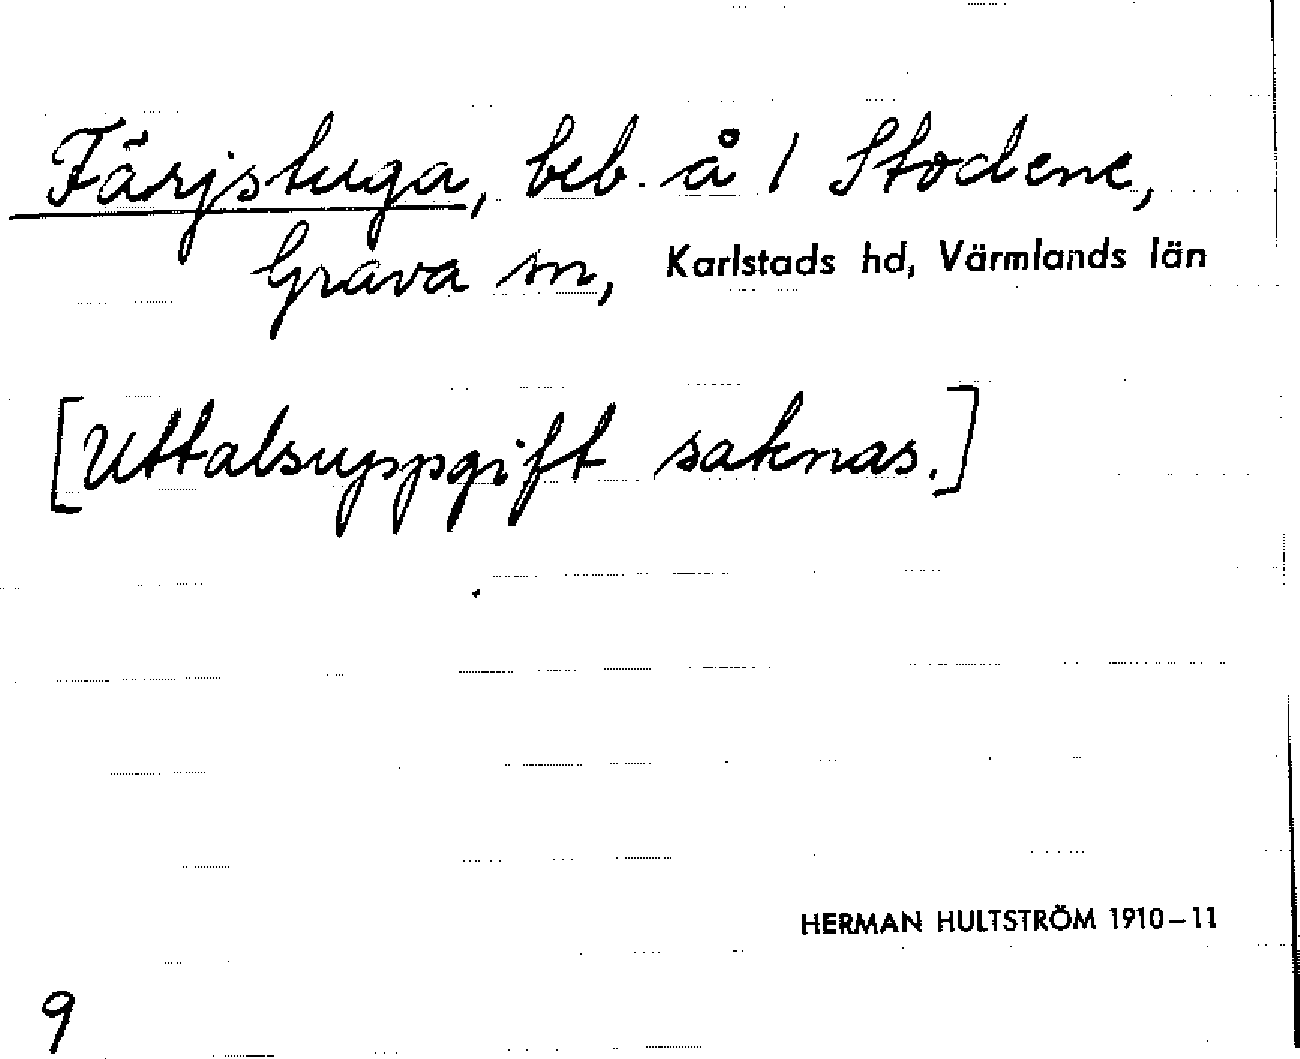 Färjstuga, beb. å 1 Stodene,
Grava sn, Karlstads hd, Värmlands län
[Uttalsuppgift saknas.]
HERMAN HULTSTRÖM 1910–11
9